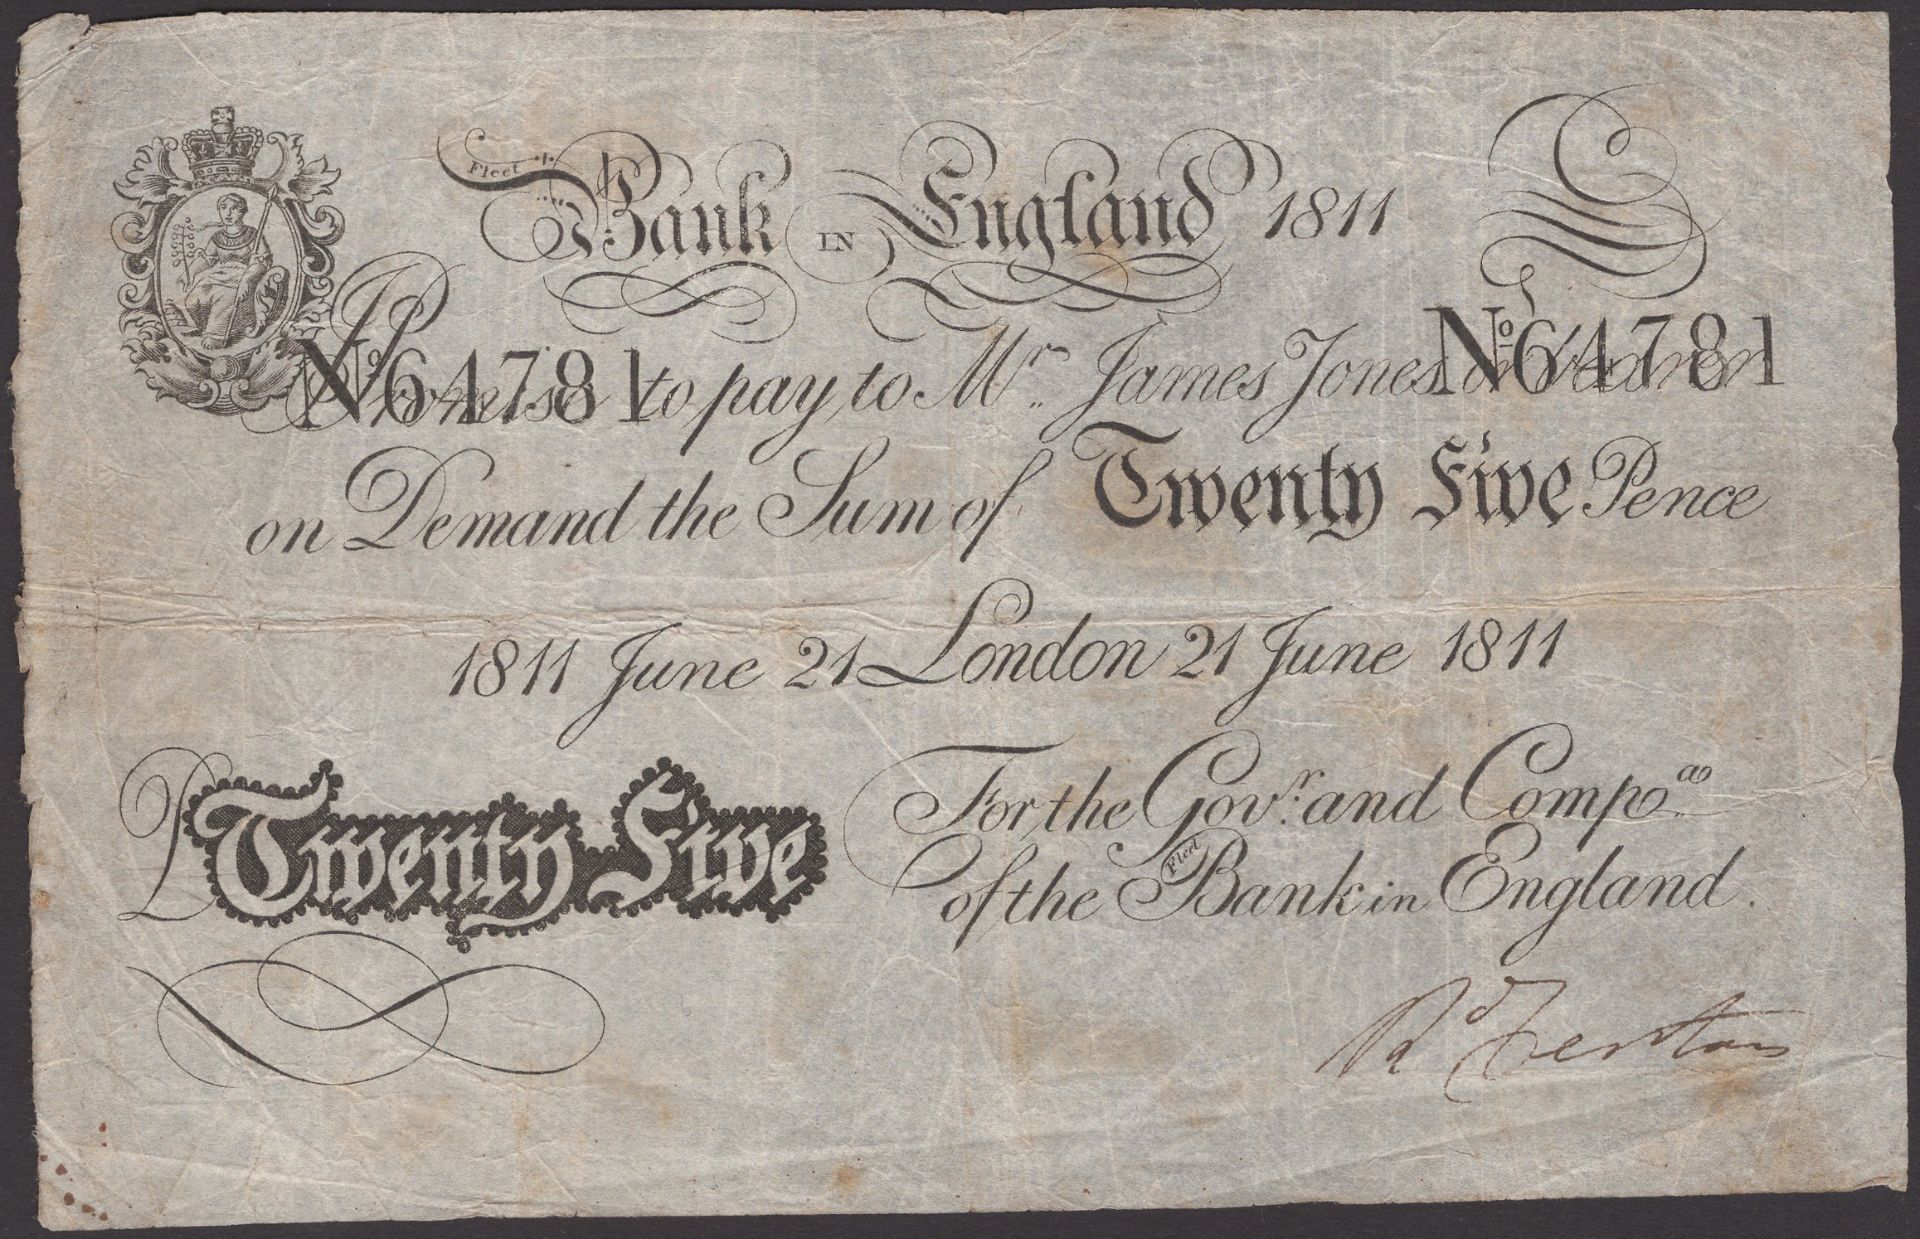 Fleet
Bank IN England 1811
No 64781 No 64781
I Promise to pay to Mr James Jones or bearer
on Demand the Sum of Twenty Five Pence
1811 June 21 London 21 June 1811
£ Twenty Five
For the Govr. and Compa.
of the Fleet Bank in England.
Rd Fenton